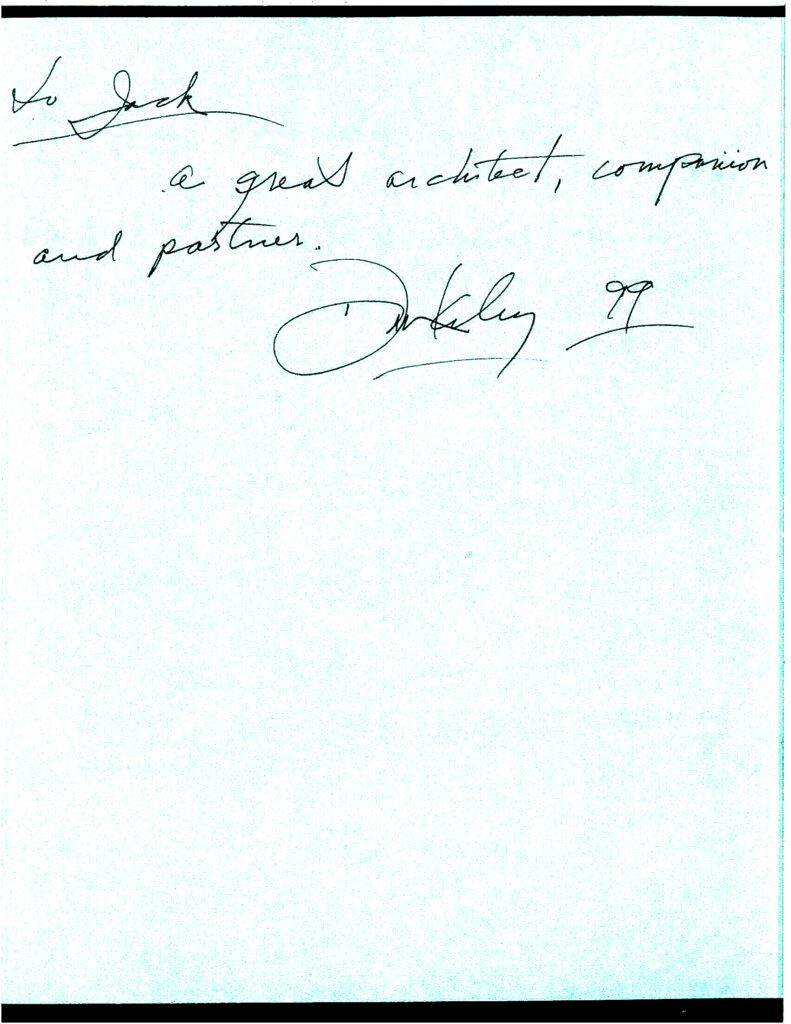 to Jack
a great architect, companion
and partner.
Dan Kiley 99